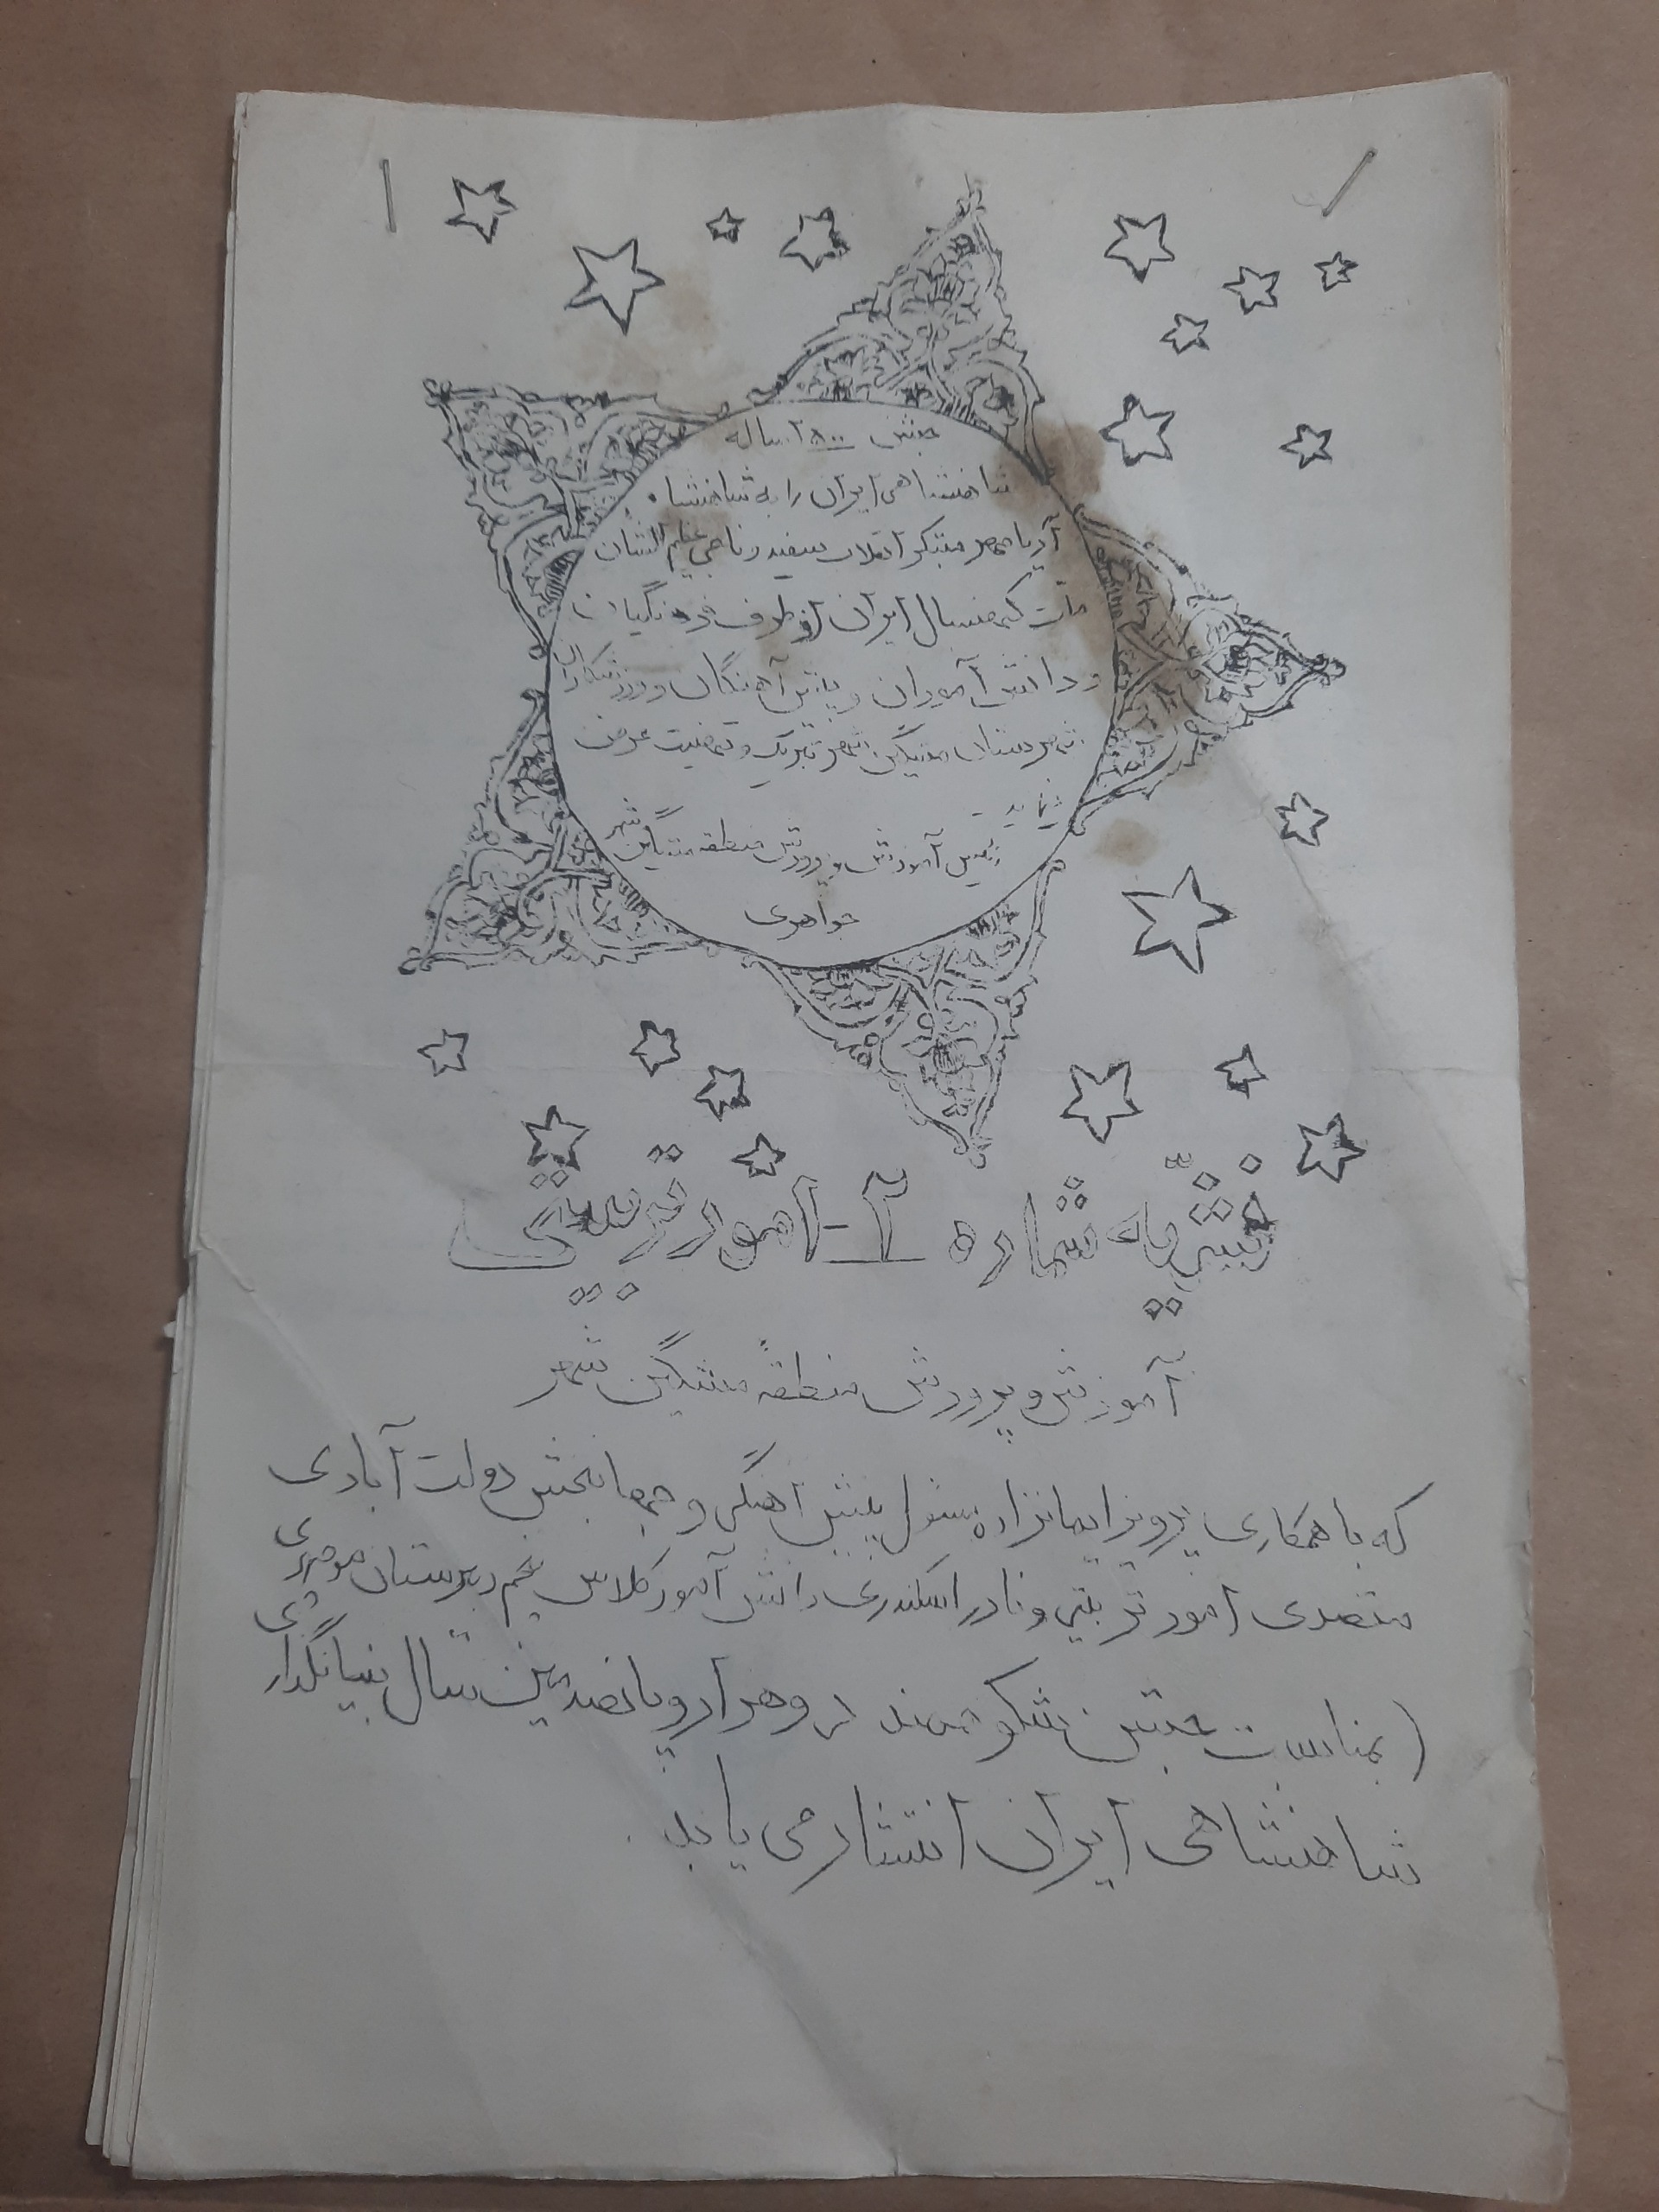 جشن ۲۵۰۰ ساله
شاهنشاهی ایران را به شاهنشاه
آریامهر مبتکر انقلاب سفید و ناجی عظیم الشان
ملت کهنسال ایران از طرف فرهنگیان
و دانش آموزان و پیش آهنگان و ورزشکاران
شهرستان مشگین شهر تبریک و تهنیت عرض
مینماید
رئیس آموزش و پرورش منطقه مشگین شهر
جواهری
نشریه شماره ۲ - امور تربیتی
آموزش و پرورش منطقهٔ مشگین شهر
که با همکاری پرویز ایمانزاده مسئول پیش آهنگی و جهانبخش دولت آبادی
متصدی امور تربیتی و نادر اسکندری دانش آموز کلاس پنجم دبیرستان
(بمناسبت جشن شکوهمند دوهزار و پانصدمین سال بنیانگذاری
شاهنشاهی ایران انتشار می یابد.